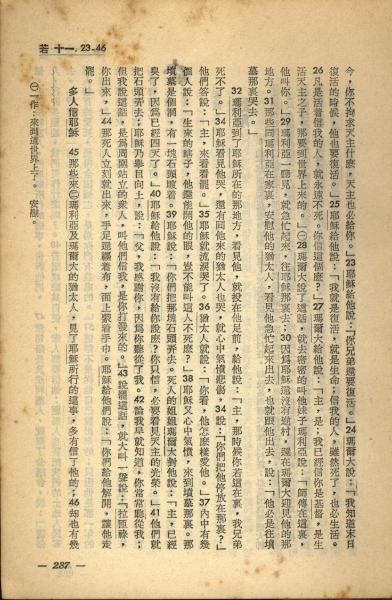 若 十一，23-46
今，你不拘求天主什麼，天主也必給你。」23耶穌給他說：「你兄弟還要復活。」24瑪爾大說：「我知道末日
復活的時候，他也要復活。」25耶穌給他說：「我就是復活，就是生命；信我的人，雖然死了，也必生活。
26凡是活着信我的人，就永遠不死。你信這個麼？」27瑪爾大給他說：「主，是；我已經信你是基督，是生
活天主之子，那要到世界上來的。」㊀28瑪爾大說了這話，就去密密的叫他妹子瑪利亞說：「師傅在這裏，
他叫你。」29瑪利亞一聽見，就急忙起來，往耶穌那裏去；30因爲耶穌還沒有進村，還在瑪爾大迎見他的那
地方。31那些同瑪利亞在家裏，安慰他的猶太人，看見他急忙起來出去，也就跟他出去，說：「他必是往墳
墓那裏哭去。」
32瑪利亞到了耶穌所在的那地方，看見他，就投在他足前，給他說：「主，那時候你若這在裏，我兄弟
死不了。」34耶穌看見他哭，還有同他來的猶太人也哭，就心中氣憤悲傷，34說：「你們把他停放在那裏？」
他們答說：「主，來看看罷。」35耶穌就流淚哭了。36猶太人就說：「你看，他怎麼樣愛他。」37內中有幾
個人說：「一生來的瞎子，他還能開他的眼，豈不能叫這人不死麼？」38耶穌又心中氣憤，來到墳墓那裏。那
墳墓是個洞，有一塊石頭堵着。39耶穌說：「你們把那塊石頭弄去。」死人的姐姐瑪爾大對他說：「主，已經
臭了，因爲已經四天了。」40耶穌給他說：「我沒有給你說麼？你負信，必要看見天主的光榮。」41他們就
把石頭弄去；耶穌乃舉目向上，說：「父，我感謝你，因爲你聽從了我。42論我是就知道，你常常聽從我；
但我說這話，是爲周圍站立的衆人，叫他們信我，是你打發來的。」43說罷這話，就大叫一聲說：「拉匝祿，
你出來，」44那死人立刻就出來，手足還纏着布，面上裹着手巾。耶穌給他們說：「你們給他解開，讓他走
罷。」
多人信耶穌 45那些來㊁瑪利亞及瑪爾大的猶太人，見了耶穌所行的這事，多有信了他的；46却也有幾
㊀一作：來到這世界上了。 安慰。
— 237. —